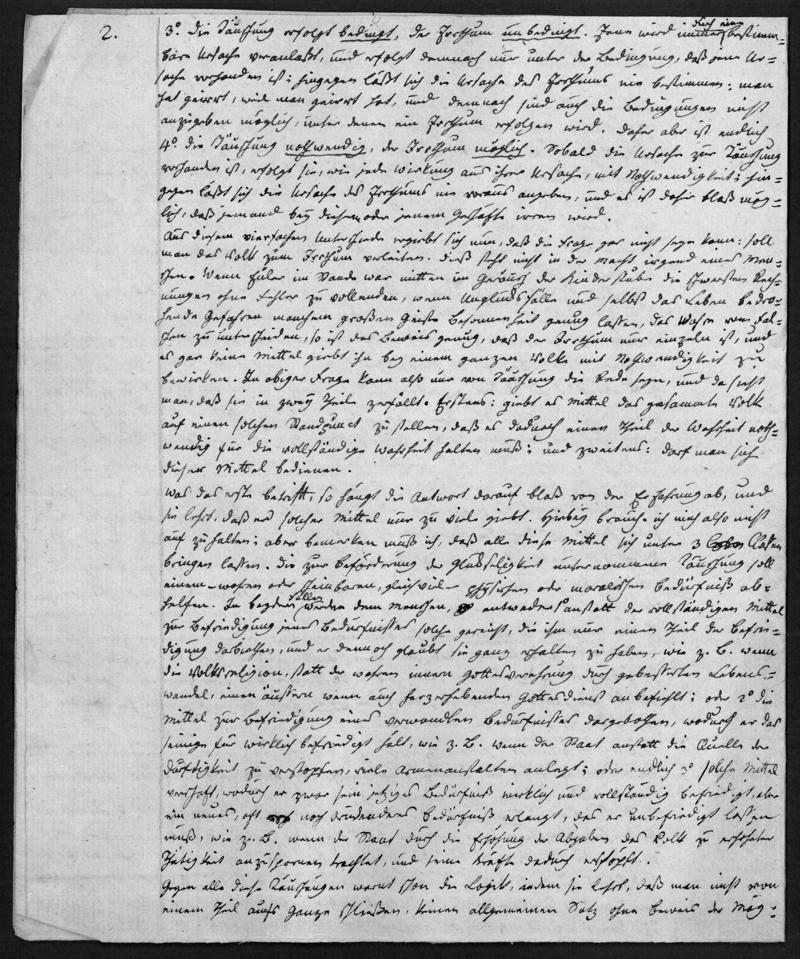 2.
3º. die Täuschung erfolgt bedingt, der Irrthum unbedingt. Jene wird durch eine bestimm=
bare Ursache veranlaßt, und erfolgt demnach nur unter der Bedingung, daß jene Ur=
sache vorhanden ist; hingegen läßt sich die Ursache des Irrthums nie bestimmen; man
hat geirrt, weil man geirrt hat, und demnach sind auch die Bedingungen nicht
anzugeben möglich, unter denen ein Irrthum erfolgen wird. Daher aber ist endlich
4º. die Täuschung nothwendig, der Irrthum möglich. Sobald die Ursache zur Täuschung
vorhanden ist, erfolgt sie, wie jede Wirkung aus ihrer Ursache, mit Nothwendigkeit; hin=
gegen läßt sich die Ursache des Irrthums nie voraus angeben, und es ist daher bloß mög=
lich, daß jemand bey diesem oder jenem Geschäfte irren wird.
Aus diesem vierfachen Unterschiede ergiebt sich nun, daß die Frage gar nicht seyn kann: soll
man das Volk zum Irrthum verleiten. Dieß steht nicht in der Macht irgend eines Men=
schen. Wenn Euler im Stande war mitten im Geräusch der Kinderstube die schwersten Rech=
nungen ohne Fehler zu vollenden, wenn Unglücksfälle und selbst das Leben bedro=
hende Gefahren manchem großen Geiste Besonnenheit genug lassen, das Wahre vom Fal=
schen zu unterscheiden, so ist das Beweis genug, daß der Irrthum nur einzeln ist, und
es gar keine Mittel giebt ihn bey einem ganzen Volke mit Nothwendigkeit zu
bewirken. In obiger Frage kann also nur von Täuschung die Rede seyn, und da sieht
man, daß sie in zwey Theile zerfällt. Erstens: giebt es Mittel das gesammte Volk
auf einen solchen Standpunct zu stellen, daß es dadurch einen Theil der Wahrheit noth=
wendig für die vollständige Wahrheit halten muß; und zweitens: darf man sich
dieser Mittel bedienen.
Was das erste betrifft, so hängt die Antwort darauf bloß von der Erfahrung ab, und
sie lehrt, daß es solcher Mittel nur zu viele giebt. Hierbey brauche ich mich also nicht
aufzuhalten; aber bemerken muß ich, daß alle diese Mittel sich unter 3 Classen
bringen lassen. Die zur Beförderung der Glückseligkeit unternommene Täuschung soll
einem – wahren oder scheinbaren, gleichviel – physischen oder moralischen Bedürfniß ab=
helfen. In beyden Fällen werden dem Menschen, entweder anstatt der vollständigen Mittel
zur Befriedigung jenes Bedürfnisses solche gereicht, die ihm nur einen Theil der Befrie=
digung darbiethen, und er dennoch glaubt sie ganz erhalten zu haben, wie z. B. wenn
die Volksreligion, statt der wahren innern Gottesverehrung durch gebesserten Lebens=
wandel, einen äußern wenn auch herzerhebenden Gottesdienst anbefiehlt; oder 2º die
Mittel zur Befriedigung eines verwandten Bedürfnisses dargebothen, wodurch er das
seinige für wirklich befriedigt hält, wie z. B. wenn der Staat anstatt die Quelle der
Dürftigkeit zu verstopfen, viele Armenanstalten anlegt; oder endlich 3º solche Mittel
verschafft, wodurch er zwar sein jetziges Bedürfniß wirklich und vollständig befriedigt, aber
ein neues, oft noch drückenderes Bedürfniß erlangt, das er unbefriedigt lassen
muß, wie z. B. wenn der Staat durch die Erhöhung der Abgaben das Volk zu erhöhter
Thätigkeit anzuspornen trachtet, und seine Kräfte dadurch erschöpft.
Gegen alle diese Täuschungen warnt schon die Logik, indem sie lehrt, daß man nicht von
einem Theil aufs Ganze schließen, keinen allgemeinen Satz ohne Beweis der Mög=